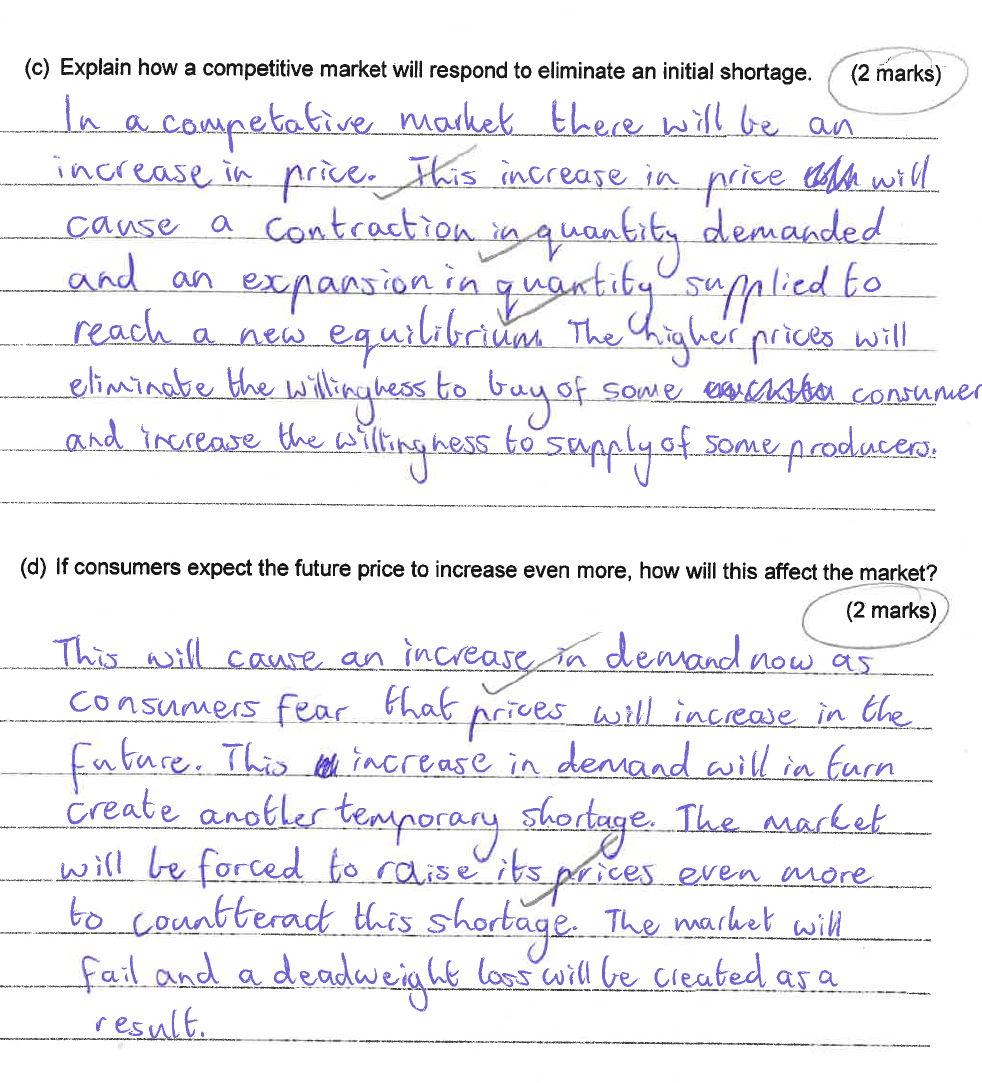 (c) Explain how a competitive market will respond to eliminate an initial shortage. (2 marks)
In a competative market there will be an
increase in price. This increase in price will
cause a contraction in quantity demanded
and an expansion in quantity supplied to
reach a new equilibrium. The higher prices will
eliminate the willingness to buy of some consumer
and increase the willingness to supply of some producers.
(d) If consumers expect the future price to increase even more, how will this affect the market?
(2 marks)
This will cause an increase in demand now as
consumers fear that prices will increase in the
future. This increase in demand will in turn
create another temporary shortage. The market
will be forced to raise its prices even more
to countteract this shortage. The market will
fail and a deadweight loss will be created as a
result.